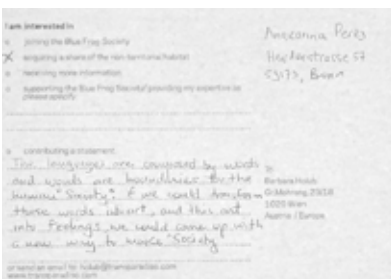 I am interested in
joining the Blue Frog Society
acquiring a share of the non-territorial habitat
receiving more information
supporting the Blue Frog Society/ providing my expertise as
please specify
53173, Bonn
contributing a statement
The languages are composed by words
and words are boundaries for the
human "Society". If we could transform
these words into art, and this art
into feelings, we could come up with
a new way to make "Society
To
Barbara Holub
1020 Wien
Austria / Europe
or send an email to: holub@transparadiso.com
www.transparadiso.com